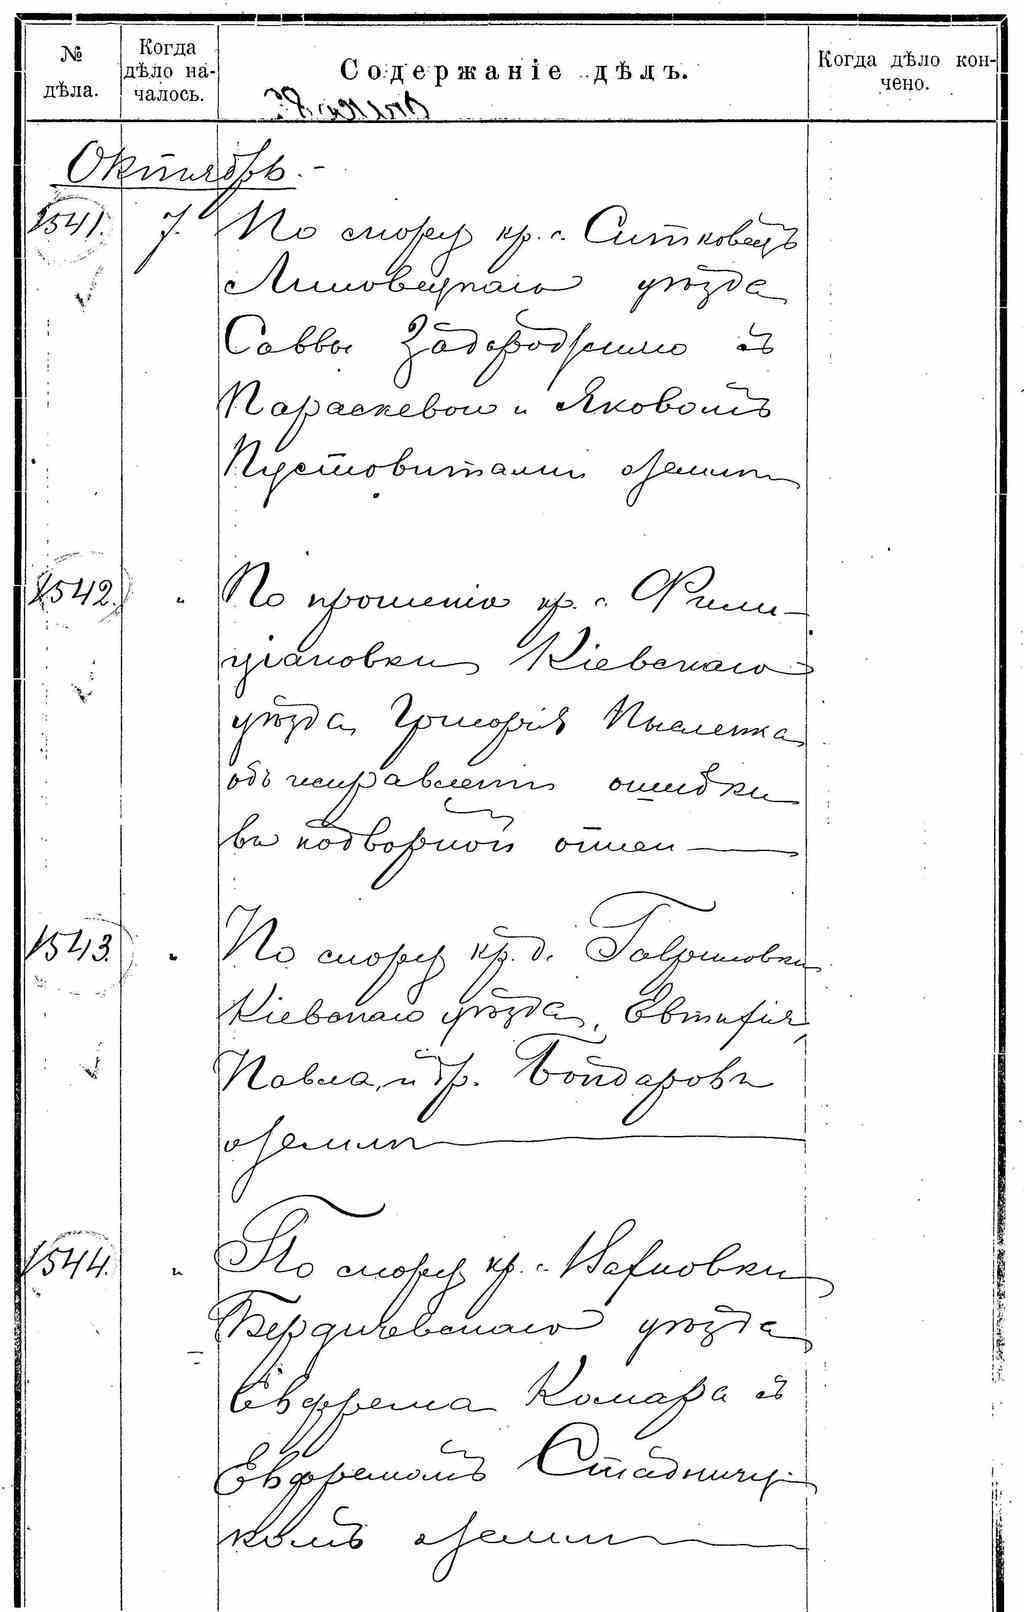 № дѣла.
Когда дѣло на-
чалось.
Содержаніе дѣлъ.
Когда дѣло кон-
чено.
Октябрь. -
1541. 7. По спору кр. с. Ситковецъ
Липовецкаго уѣзда
Саввы Задорожнаго съ
Параскевою и Яковомъ
Пустовитами о земли
1542. " По прошенію кр. с. Фили-
шановки Кіевскаго
уѣзда Григорія
объ исправленіи ошибки
въ подворной описи
1543. " По спору кр. д. Гавриловки
Кіевскаго уѣзда, Евтифія,
Павла, и др. Бондаровъ
о земли
1544. " По спору кр. с.
Бердичевскаго уѣзда
Евфрема Комара съ
Евфремомъ Стадничу-
комъ о земли